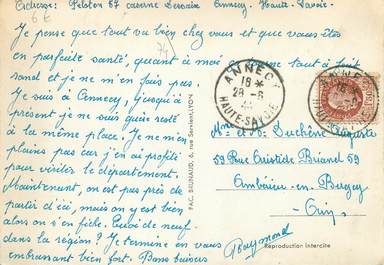 Adresse: Peloton 87 caserne Dessaix Annecy. Haute-Savoie.
Je pense que tout va bien chez vous et que vous êtes
en parfaite santé, quant à moi ça tourne tout à fait
rond et je ne m'en fais pas.
Je suis à Annecy, jusqu'à
présent je ne suis que resté
à la même place. Je ne m'en
plains pas car j'en ai profité
pour visiter le département.
Maintenant, on est pas près de
partir d'ici, mais on y est bien
alors on s'en fiche. Quoi de neuf
dans la région? Je termine en vous
embrassant bien fort. Bons baisers
Raymond
PAC. BRUNAUD, 6, rue Servient, LYON
ANNECY
18 *
28-6
HAUTE-SAVOIE
Mme et M. Duchêne Auguste
59 Rue Aristide Briand 59
Ambérieu en Bugey
Ain
Reproduction interdite